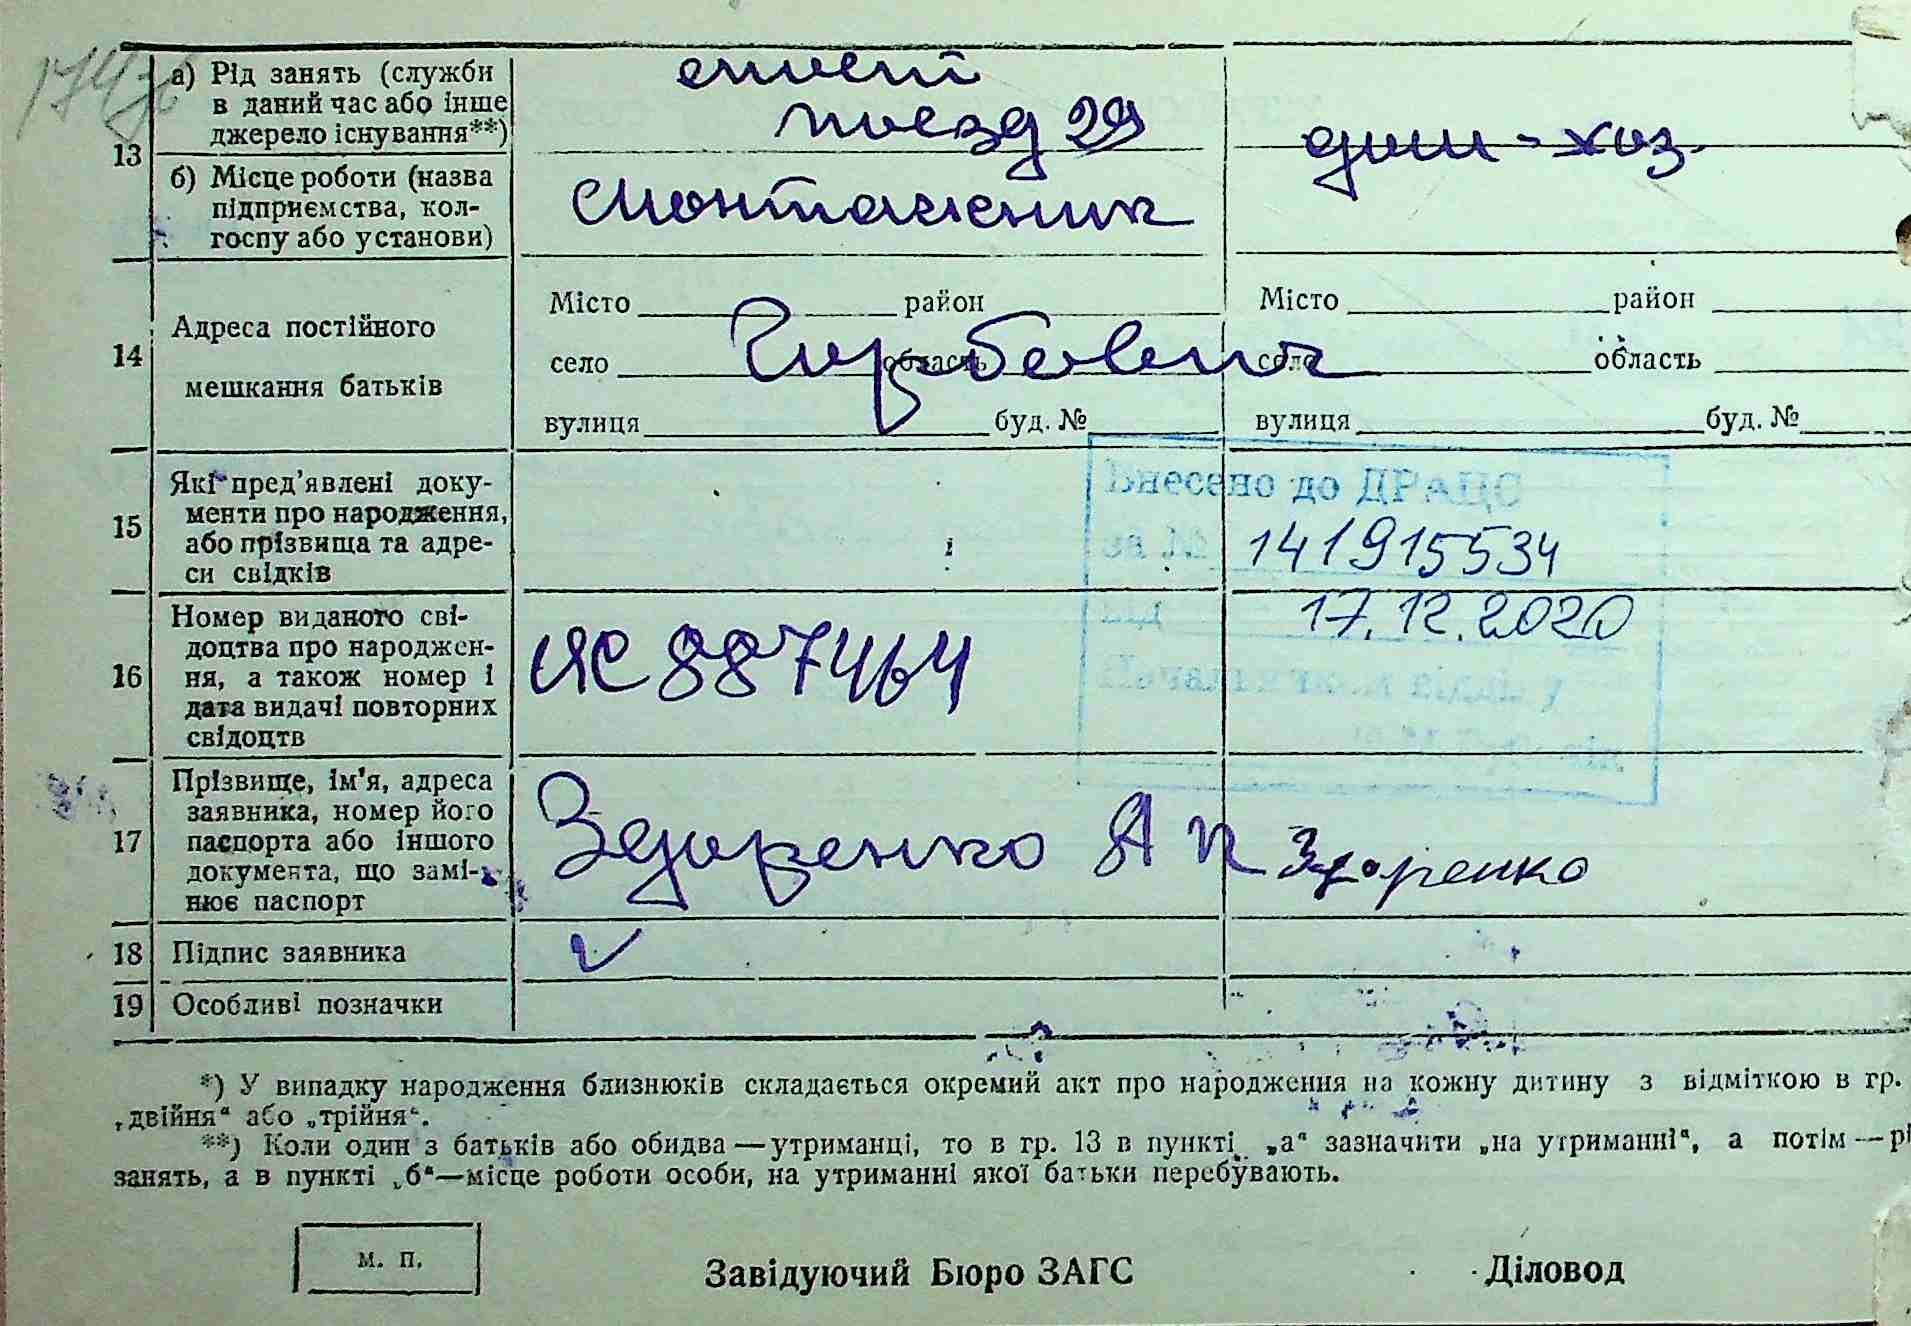 13
а) Рід занять (служби
в даний час або інше
джерело існування**)
поезд 29
дом-хоз.
б) Місце роботи (назва
підприємства, кол-
госпу або установи)
монтажник
14
Адреса постійного
мешкання батьків
Місто район
село область
вулиця буд. №
Місто район
село область
вулиця буд. №
15
Які пред'явлені доку-
менти про народження,
або прізвища та адре-
си свідків
Внесено до ДРАЦС
за № 141915534
від 17.12.2020
16
Номер виданого сві-
доцтва про народжен-
ня, а також номер і
дата видачі повторних
свідоцтв
ЯС 887464
17
Прізвище, ім'я, адреса
заявника, номер його
паспорта або іншого
документа, що замі-
нює паспорт
Здоренко А П Здоренко
18 Підпис заявника
19 Особливі позначки
*) У випадку народження близнюків складається окремий акт про народження на кожну дитину з відміткою в гр.
„двійня“ або „трійня“.
**) Коли один з батьків або обидва—утриманці, то в гр. 13 в пункті „а“ зазначити „на утриманні“, а потім—рі
занять, а в пункті „б“—місце роботи особи, на утриманні якої батьки перебувають.
м. п.
Завідуючий Бюро ЗАГС
Діловод